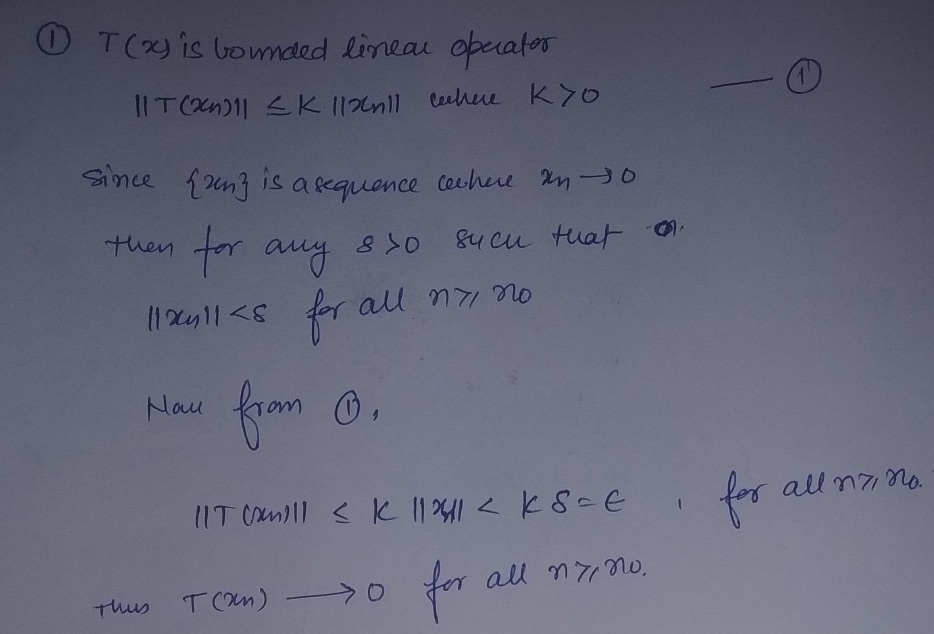 ① T(x) is bounded linear operator
||T(xn)|| ≤ K ||xn|| where K>0 — ①
Since {xn} is a sequence where xn → 0
then for any δ>0 such that
||xn|| < δ for all n ≥ n0
Now from ①,
||T(xn)|| ≤ K ||xn|| < K δ = ϵ , for all n ≥ n0.
Thus T(xn) → 0 for all n ≥ n0.